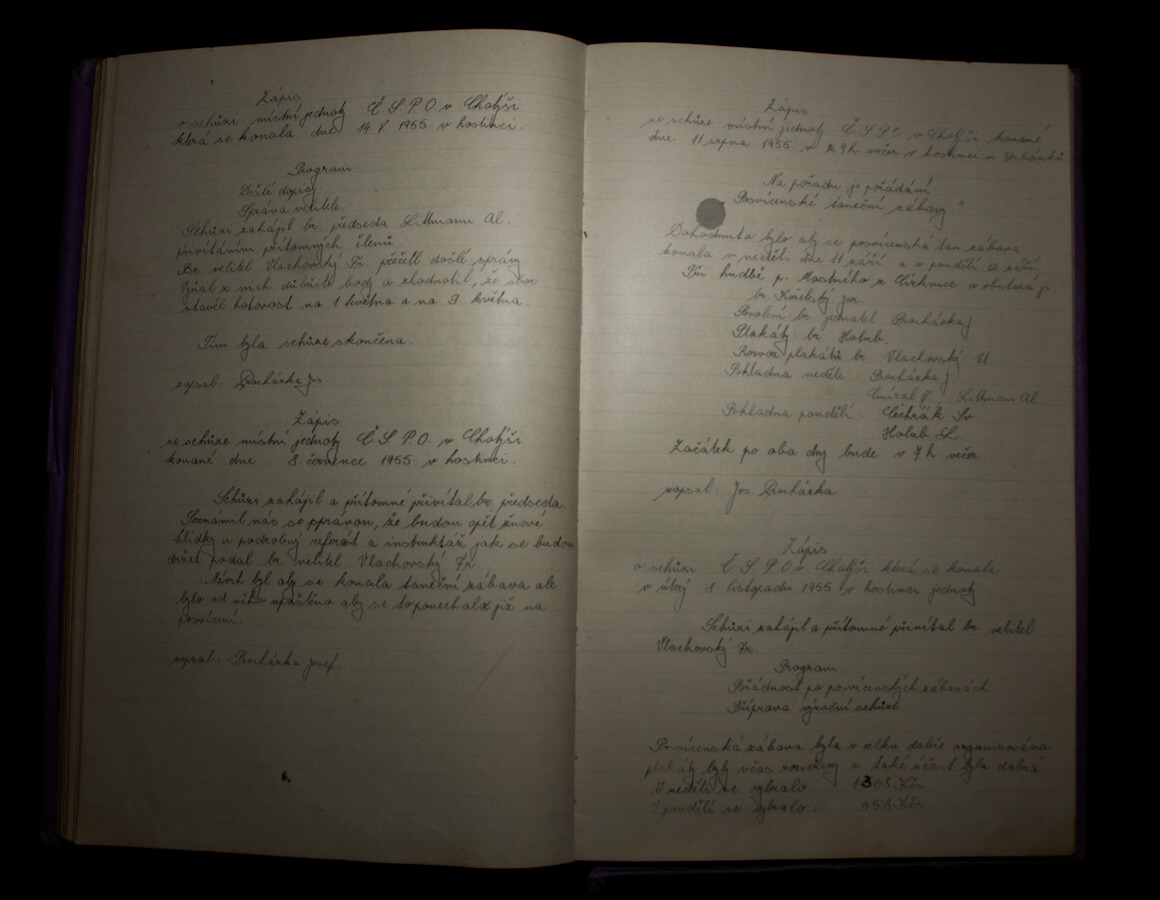 Zápis
o schůzi místní jednoty Č.S.P.O. v Chotýši
která se konala dne 14 V 1955 v hostinci.
Program:
Došlé dopisy
Správa velitele.
Schůzi zahájil br. předseda Littmann Al.
přivítáním přítomných členů.
Br. velitel Vlachovský Fr. přečetl došlé správy
Vyňal z nich důležité body a zhodnotil, že sbor
stavěl hotovost na 1 května a na 9 května.
Tím byla schůze skončena.
zapsal: Procházka Jos.
Zápis
ze schůze místní jednoty Č.S.P.O. v Chotýši
konané dne 8. července 1955 v hostinci.
Schůzi zahájil a přítomné přivítal br. předseda.
Seznámil nás se zprávou, že budou opět žňové
hlídky a podrobný referát a instruktáž jak se budou
držet podal br. velitel Vlachovský Fr.
Návrh byl aby se konala taneční zábava ale
bylo od něho upuštěno aby se to ponechalo již na
posvícení.
zapsal: Procházka Josef.
Zápis
ze schůze místní jednoty Č.S.P.O. v Chotýši konané
dne 11 srpna 1955 v 9 h. večer v hostinci u
Na pořadu je pořádání
Posvícenské taneční zábavy."
Dohodnuto bylo aby se posvícenská tan. zábava
konala v neděli dne 11 září a v pondělí 12 září
Při hudbě p. Mostného z Církvice a obstará j
br. jun.
Povolení: br. jednatel Procházka J
Plakáty: br Holub.
Rozvoz plakátů br. Vlachovský
Pokladna neděle: Procházka J.
Littmann Al.
Pokladna pondělí: Čechrák Sv
Holub L.
Začátek po oba dny bude v 7 h. večer.
zapsal: Jos. Procházka
Zápis
o schůzi Č.S.P.O. v Chotýši která se konala
v úterý 8 listopadu 1955 v hostinci jednoty
Schůzi zahájil a přítomné přivítal br. velitel
Vlachovský Fr.
Program
Pořádnost po posvícenských zábavách
Příprava výroční schůze
Posvícenská zábava byla v celku dobře organisována
plakáty byly včas rozvěšeny a také účast byla dobrá
V neděli se vybralo Kčs
V pondělí se vybralo: 468 Kčs